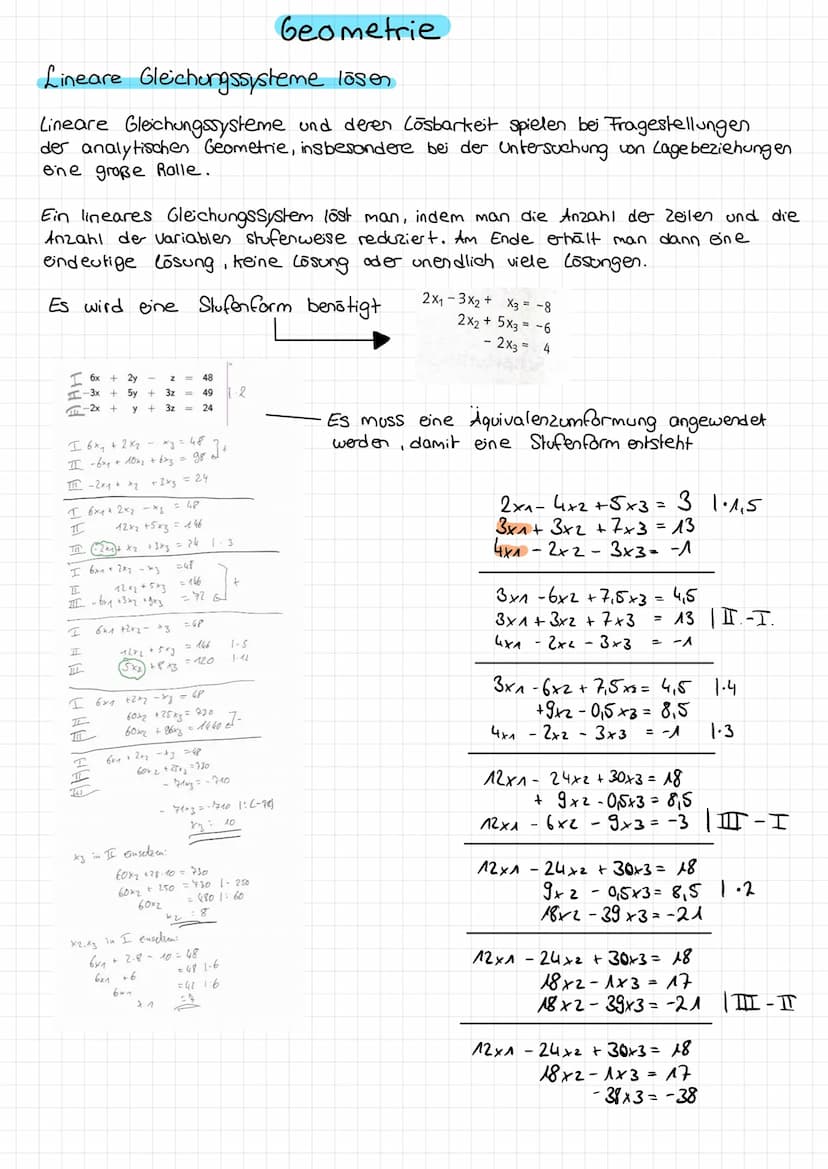 Geometrie
Lineare Gleichungssysteme lösen
Lineare Gleichungssysteme und deren Lösbarkeit spielen bei Fragestellungen
der analytischen Geometrie, insbesondere bei der Untersuchung von Lagebeziehungen
eine große Rolle.
Ein lineares Gleichungssystem löst man, indem man die Anzahl der Zeilen und die
Anzahl der Variablen stufenweise reduziert. Am Ende erhält man dann eine
eindeutige Lösung, keine Lösung oder unendlich viele Lösungen.
Es wird eine Stufenform benötigt
2x₁ - 3x₂ + x₃ = -8
2x₂ + 5x₃ = -6
- 2x₃ = 4
I 6x + 2y - z = 48
II -3x + 5y + 3z = 49 | · 2
III -2x + y + 3z = 24
Es muss eine Äquivalenzumformung angewendet
werden, damit eine Stufenform entsteht
I 6x₁ + 2x₂ - x₃ = 48
II -6x₁ + 10x₂ + 6x₃ = 98 +
III -2x₁ + x₂ + 3x₃ = 24
I 6x₁ + 2x₂ - x₃ = 48
II 12x₂ + 5x₃ = 146
III -2x₁ + x₂ + 3x₃ = 24 | · 3
I 6x₁ + 2x₂ - x₃ = 48
II 12x₂ + 5x₃ = 146 +
III -6x₁ + 3x₂ + 9x₃ = 72
I 6x₁ + 2x₂ - x₃ = 48
II 12x₂ + 5x₃ = 146 | · 5
III 5x₂ + 8x₃ = 120 | · 12
I 6x₁ + 2x₂ - x₃ = 48
II 60x₂ + 25x₃ = 730
III 60x₂ + 96x₃ = 1440 -
I 6x₁ + 2x₂ - x₃ = 48
II 60x₂ + 25x₃ = 730
III - 71x₃ = -710
- 71x₃ = -710 | : (-71)
x₃ = 10
x₃ in II einsetzen:
60x₂ + 25 · 10 = 730
60x₂ + 250 = 730 | - 250
60x₂ = 480 | : 60
x₂ = 8
x₂, x₃ in I einsetzen:
6x₁ + 2 · 8 - 10 = 48
6x₁ + 6 = 48 | - 6
6x₁ = 42 | : 6
x₁ = 7
2x1 - 4x2 + 5x3 = 3 | · 1,5
3x1 + 3x2 + 7x3 = 13
4x1 - 2x2 - 3x3 = -1
3x1 - 6x2 + 7,5x3 = 4,5
3x1 + 3x2 + 7x3 = 13 | II. - I.
4x1 - 2x2 - 3x3 = -1
3x1 - 6x2 + 7,5x3 = 4,5 | · 4
+ 9x2 - 0,5x3 = 8,5
4x1 - 2x2 - 3x3 = -1 | · 3
12x1 - 24x2 + 30x3 = 18
+ 9x2 - 0,5x3 = 8,5
12x1 - 6x2 - 9x3 = -3 | III - I
12x1 - 24x2 + 30x3 = 18
9x2 - 0,5x3 = 8,5 | · 2
18x2 - 39x3 = -21
12x1 - 24x2 + 30x3 = 18
18x2 - 1x3 = 17
18x2 - 39x3 = -21 | III - II
12x1 - 24x2 + 30x3 = 18
18x2 - 1x3 = 17
- 38x3 = -38